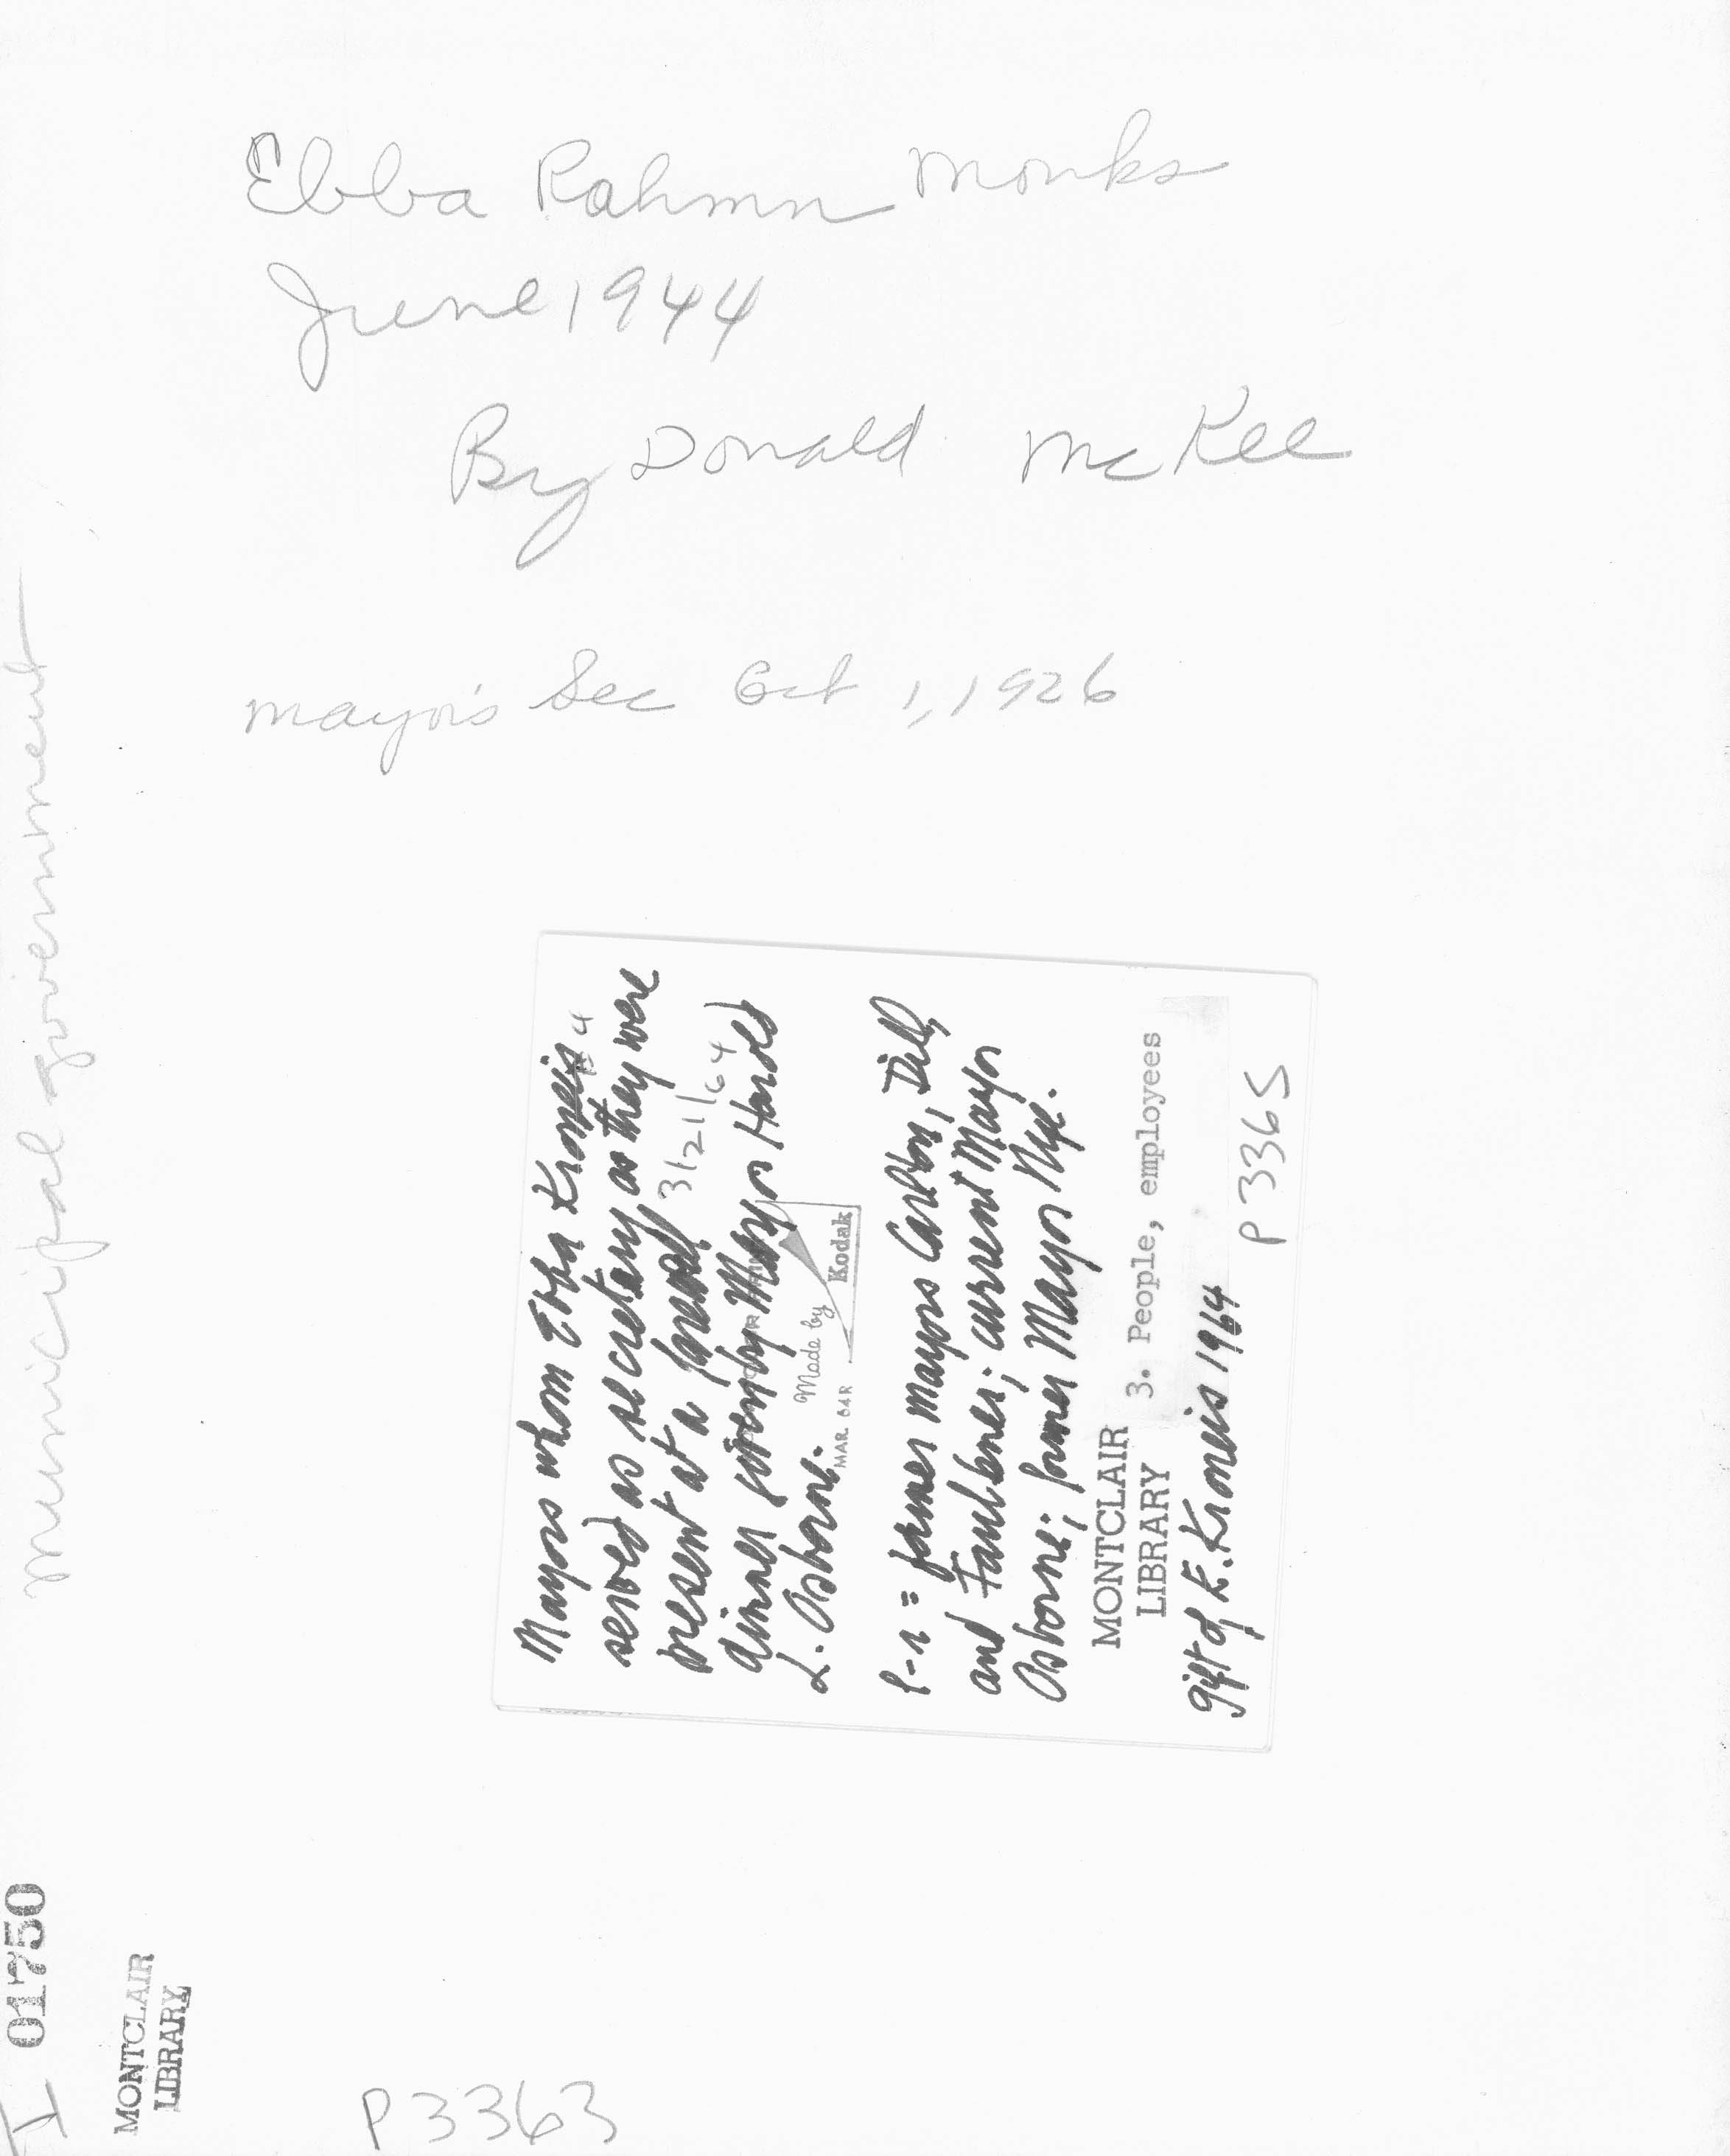 Ebba Rahmn Monks
June 1944
By Donald McKee
Mayor's Sec Oct 1, 1926
municipal government
Mayors whom Ebba Kroneis
served as secretary as they were
present at a farewell 3/21/64
dinner given by Mayor Harold
L. Osborne.
Made by
Kodak
MAR 64R
l-r = former mayors Carlson, Dill,
and Faulkner; current Mayor
Osborne; former Mayor Nye.
MONTCLAIR
LIBRARY
3. People, employees
gift of E. Kroneis 1964
P 3365
I 01750
MONTCLAIR
LIBRARY
P3363